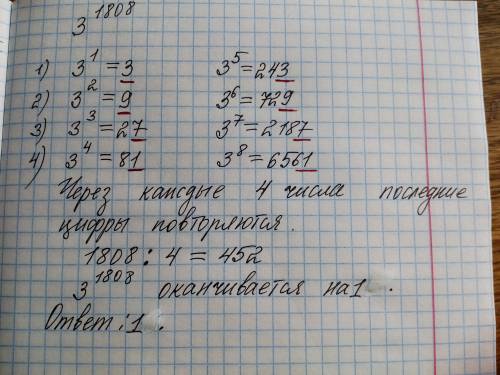 3¹⁸⁰⁸
1) 3¹ = 3 3⁵ = 243
2) 3² = 9 3⁶ = 729
3) 3³ = 27 3⁷ = 2187
4) 3⁴ = 81 3⁸ = 6561
Через каждые 4 числа последние
цифры повторяются.
1808 : 4 = 452
3¹⁸⁰⁸ оканчивается на 1 .
Ответ: 1 .